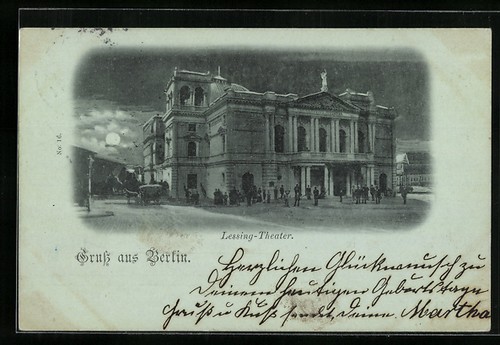 No 16.
Lessing-Theater.
Gruß aus Berlin.
Herzlichen Glückwunsch zu
Deinem heutigen Geburtstage
Gruß u Kuß sendet Deine Martha